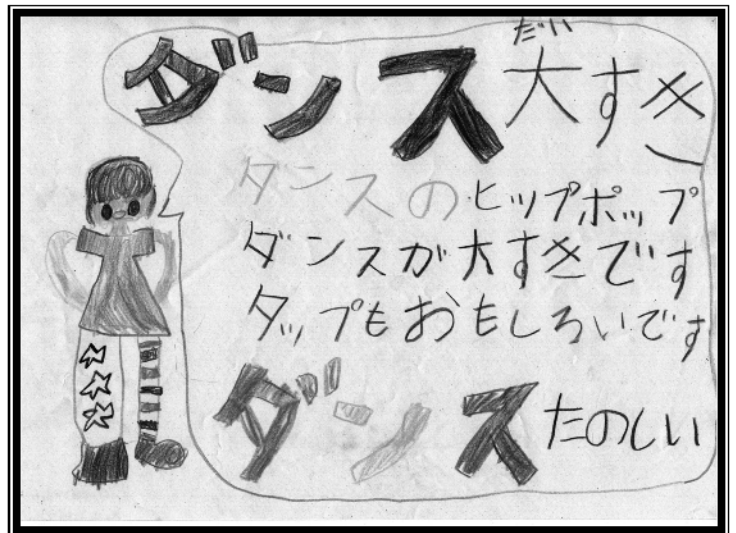 ダンス大すき
だい
ダンスのヒップホップ
ダンスが大すきです
タップもおもしろいです
ダンスたのしい